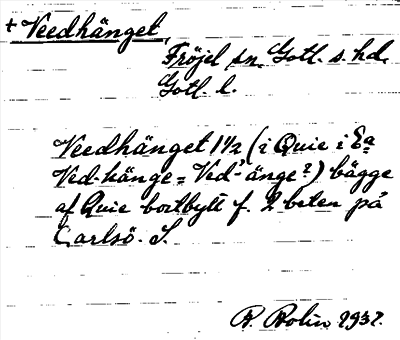 + Veedhänget,
Fröjel sn. Gotl. s. hd.
Gotl. l.
Veedhänget 1 1/2 (i Quie i Ea
Ved-hänge = Ved-änge?) bägge
af Quie bortbytt f. 2 beten på
Carlsö. S.
B. Bolin 1937.